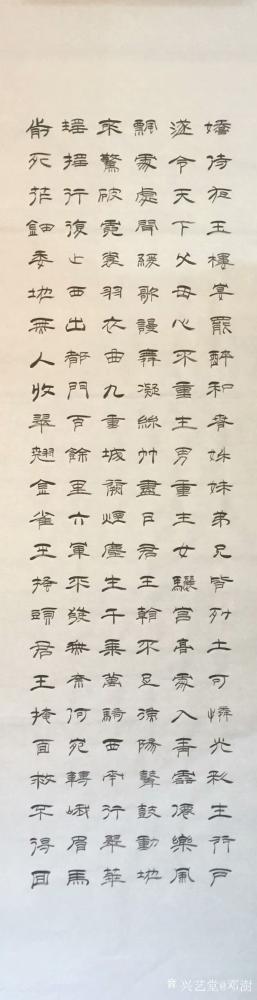 嬌侍夜玉樓宴罷醉和春姊妹弟兄皆列土可憐光彩生門戶
遂令天下父母心不重生男重生女驪宮高處入青雲仙樂風
飄處處聞緩歌謾舞凝絲竹盡日君王看不足漁陽鼙鼓動地
來驚破霓裳羽衣曲九重城闕煙塵生千乘萬騎西南行翠華
搖搖行復止西出都門百餘里六軍不發無奈何宛轉峨眉馬
前死花鈿委地無人收翠翹金雀玉搔頭君王掩面救不得回
兴艺堂@邓澍